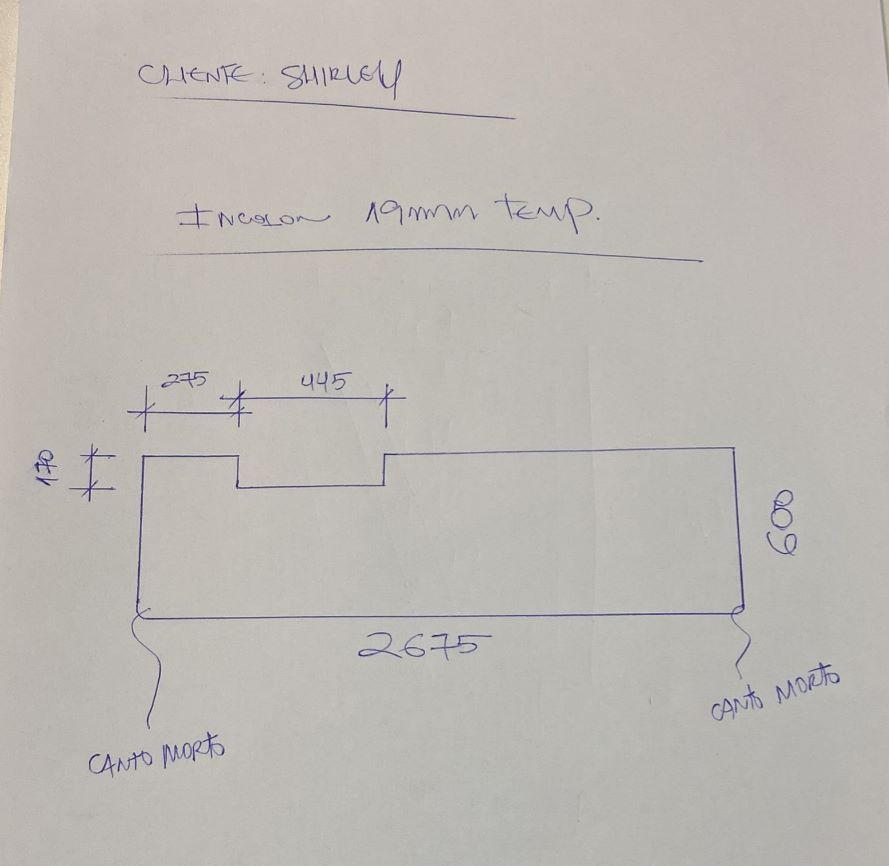 CLIENTE: SHIRLEY
INCOLOR 19mm TEMP.
275
445
170
600
2675
CANTO MORTO
CANTO MORTO